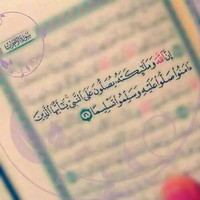 سورة الأحزاب
إِنَّ ٱللَّهَ وَمَلَٰٓئِكَتَهُۥ يُصَلُّونَ عَلَى ٱلنَّبِيِّ يَٰٓأَيُّهَا ٱلَّذِينَ
ءَامَنُوا۟ صَلُّوا۟ عَلَيْهِ وَسَلِّمُوا۟ تَسْلِيمًا ٥٦